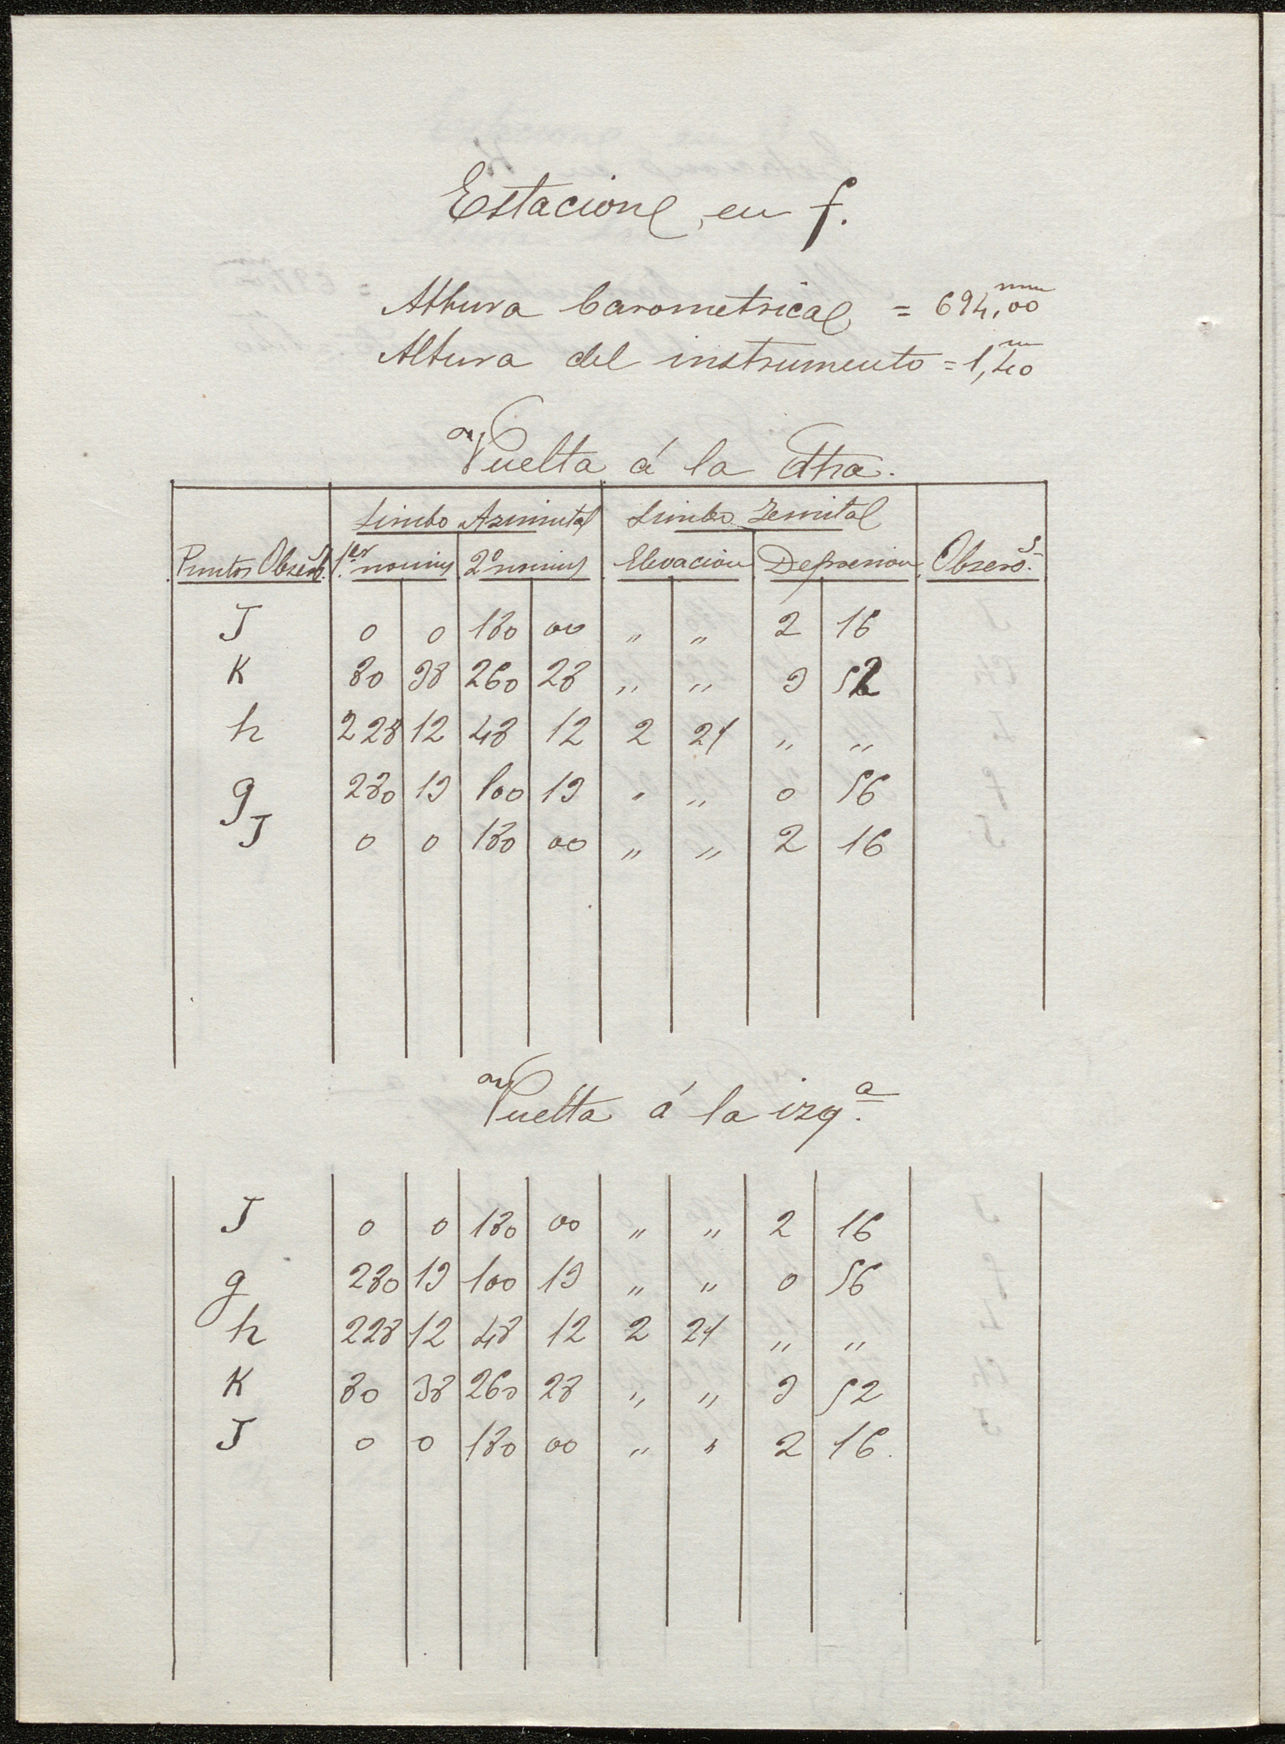 Estacion en f.
Altura barometrica = 694,00 mm
Altura del instrumento = 1,40 m
Vuelta á la dha.
Limbo Azimutal Limbo Zenital
Puntos Observ.s 1.er nonius 2º nonius Elevacion Depresion Observ.s
J 0 0 180 00 „ „ 2 16
K 80 38 260 28 „ „ 3 52
h 228 12 48 12 2 21 „ „
g 280 19 100 19 „ „ 0 56
J 0 0 180 00 „ „ 2 16
Vuelta á la izq.a
J 0 0 180 00 „ „ 2 16
g 280 19 100 19 „ „ 0 56
h 228 12 48 12 2 21 „ „
K 80 38 260 28 „ „ 3 52
J 0 0 180 00 „ „ 2 16.